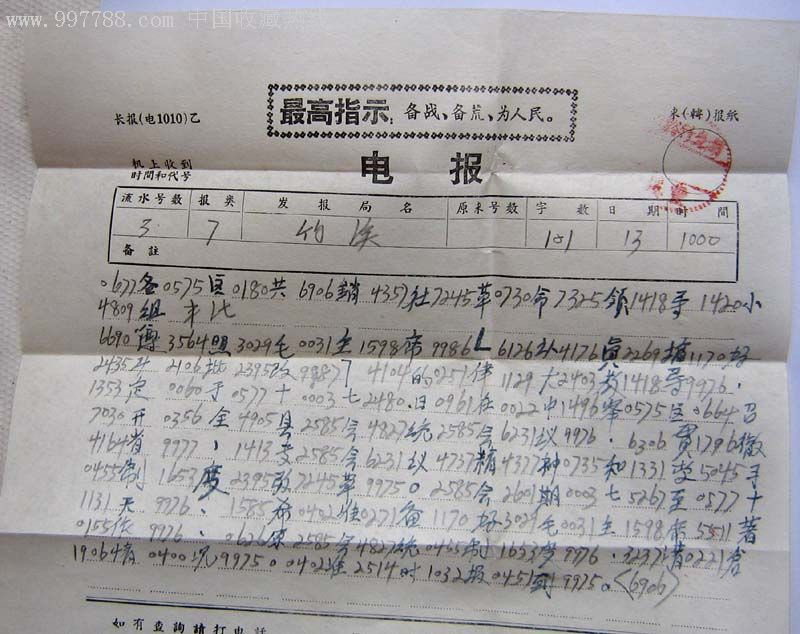 www.997788.com 中国收藏热线
最高指示：备战、备荒、为人民。
长报(电1010)乙
来(转)报纸
机上收到
时间和代号
电 报
流水号数 报类 发报局名 原来号数 字数 日期 时间
3 7 竹溪 101 13 1000
备註
0677各 0575区 0180共 6906銷 4357社 7245革 0730命 7325領 1418导 1420小
4809组
3564照 3029毛 0031主 1598席 9986 6126 4176真 2269 1170好
2435 2106批 2395改 9987 4104的 0251 1129大 2403 1418导 9976.
1353定 0060于 0577十 0003七 2480日 0961在 0022中 1496 0575区 0664召
7030开 0356全 4905县 2585会 4827统 2585会 6231议 9976. 6306貫 1796徹
4164省 9977、 1413 2585会 6231议 4737精 4377神 0735和 1331 5045
0455制 1653度 2395改 7245革 9975。 2585会 2601期 0003七 5267至 0577十
1131天 9976、 1585希 0402准 0271备 1170好 3029毛 0031主 1598席 5511著
0155 9976、 2585会 4827统 0455制 1653度 9976、 3237 0221
0400况 9975。 0402准 2514时 1032报 0451到 9975。(6906)
如有查詢請打电話